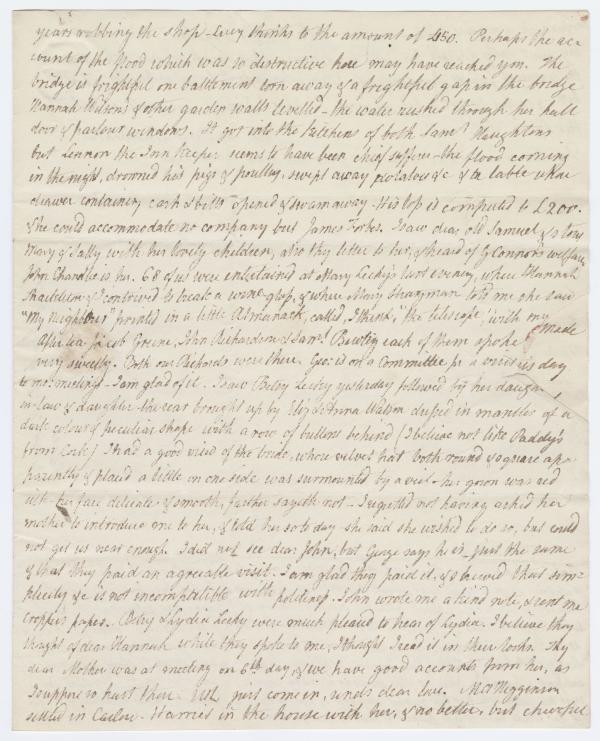 years robbing the shop - Lucy thinks to the amount of £50. Perhaps the ac=
count of the flood which was so destructive here may have reached you. The
bridge is frightful one battlement torn away & a frightful gap in the bridge
Hannah Watson's & other garden walls levelled - the water rushed through her hall
door & parlour windows. It got into the kitchens of both Saml Haughtons
but Lennon the Inn keeper seems to have been chief sufferer - the flood coming
in the night, drowned his pigs & poultry, swept away potatoes &c & the table whose
drawer containing cash & bills opened & swam away. His loss is computed to £200.
& he could accommodate no company but James Forbes. I saw dear old Samuel & also
Mary & Sally with her lovely children, also thy letter to her, & heard of G Connor's welfare
John Chandlee is her. 68 of us were entertained at Mary Lecky's last evening, where Hannah
Shackleton & I contrived to break a wine glass, & where Mary Strangman told me she saw
"My Neighbour" printed in a little Almanack, called, I think, "the telescope," with my
After tea Jacob Greene, John Richardson & Saml Bewley each of them spoke
very sweetly. Both our Richards were there. Geo: is on a Committee for a visit to day
to mo: meetings - I am glad of it. I saw Betsy Lecky yesterday followed by her daugh.
in-law & daughter - the rear brought up by Eliz & Anna Watson dressed in mantles of a
dark colour & peculiar shape with a row of buttons behind (I believe not like Paddy's
from Cork) I had a good view of the bride, whose velvet hat both round & square ap=
parently & placed a little on one side was surmounted by a veil - her gown was red
silk - her face delicate & smooth, further sayeth not - I regretted not having asked her
mother to introduce me to her, & told her so to day she said she wished to do so, but could
not get us near enough. I did not see dear John, but George says he is just the same
& that they paid an agreeable visit. I am glad they paid it, & shewed that sim=
plicity &c is not incompatible with politeness. John wrote me a kind note, & sent me
Cropper's papers. Betsy & Lydia Lecky were much pleased to hear of Lydia. I believe they
thought of dear Hannah while they spoke to me, I thought I read it in their looks. Thy
dear Mother was at meeting on 6th day, & we have good accounts from her, as
I suppose so hast thou. just come in, sends dear love.
settled in Carlow - Harriet in the house with her, & no better, but cheerful